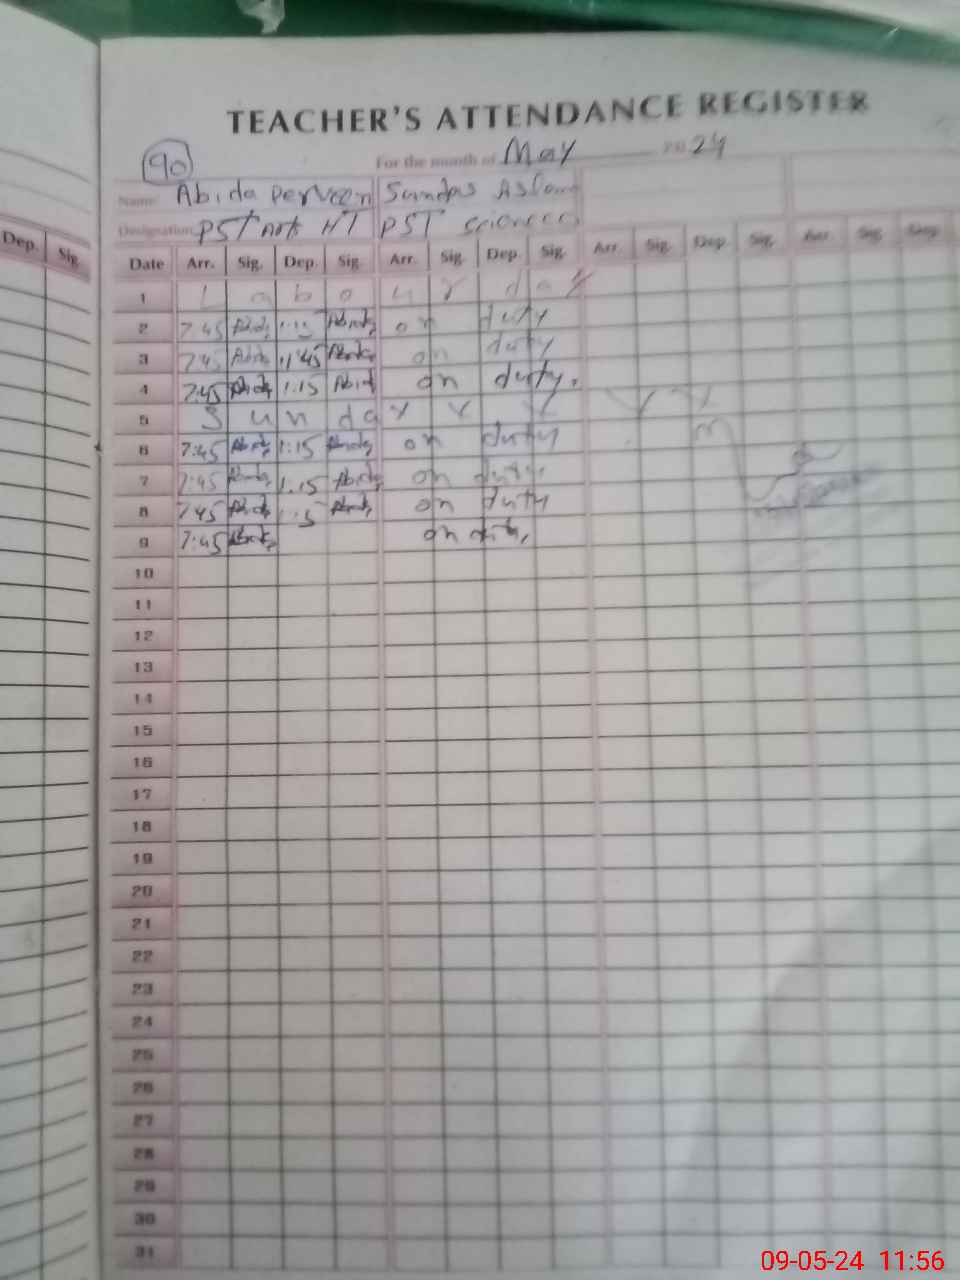 TEACHER'S ATTENDANCE REGISTER
90
For the month of May 24
Name Abida Perveen Sundas Aslam
Designation PST Arts HT PST science
Dep. Sig.
Date Arr. Sig. Dep. Sig. Arr. Sig. Dep. Sig. Arr. Sig. Dep. Sig. Arr. Sig. Dep.
1 L a b o u r d a y
2 7:45 Abida 1:15 Abida on duty
3 7:45 Abida 11:45 Abida on duty
4 7:45 Abida 1:15 Abida on duty.
5 S u n d a y
6 7:45 Abida 1:15 Abida on duty
7 7:45 Abida 1:15 Abida on duty
8 7:45 Abida 1:15 Abida on duty
9 7:45 Abida on duty
10
11
12
13
14
15
16
17
18
19
20
21
22
23
24
25
26
27
28
29
30
31
09-05-24 11:56